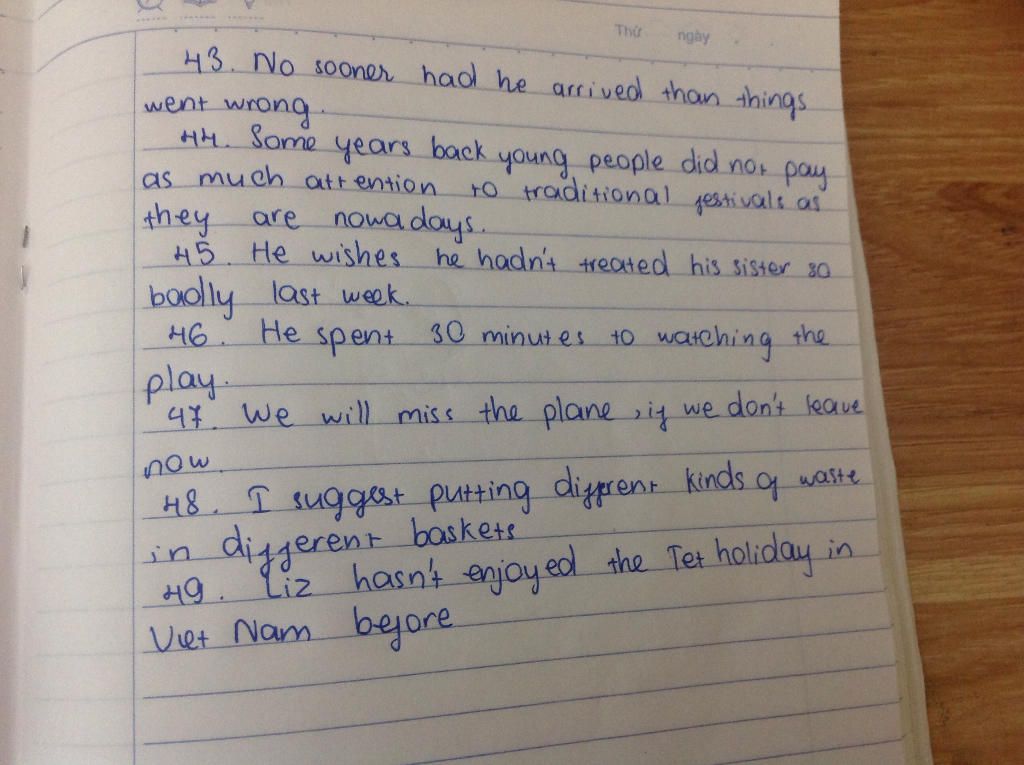 Thứ ngày
43. No sooner had he arrived than things
went wrong.
44. Some years back young people did not pay
as much attention to traditional festivals as
they are nowadays.
45. He wishes he hadn't treated his sister so
badly last week.
46. He spent 30 minutes to watching the
play.
47. We will miss the plane, if we don't leave
now.
48. I suggest putting different kinds of waste
in different baskets
49. Liz hasn't enjoyed the Tet holiday in
Viet Nam before